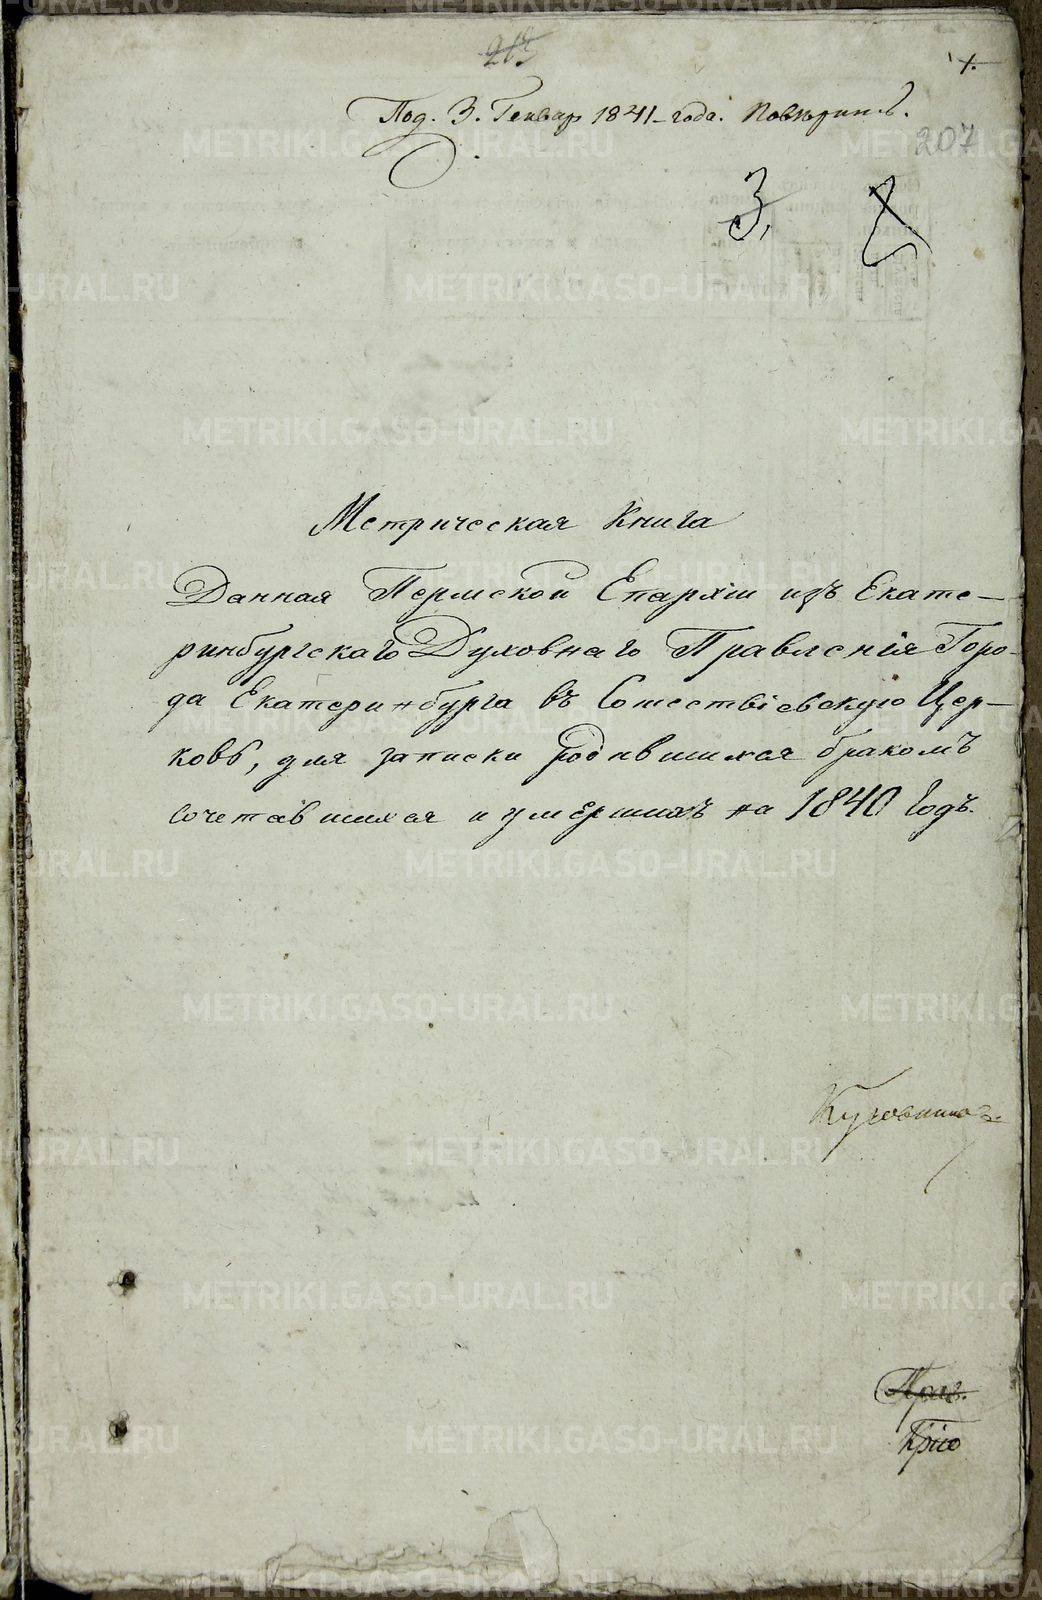 1.
Под. 3. Генвар 1841-года.
207
3,
Метрическая Книга
Данная Пермской Епархіи изъ Екате-
ринбургскаго Духовнаго Правленія Горо-
да Екатеринбурга въ Сошествіевскую Цер-
ковь, для записки родившихся бракомъ
сочетавшихся и умершихъ на 1840 Годъ.
METRIKI.GASO-URAL.RU